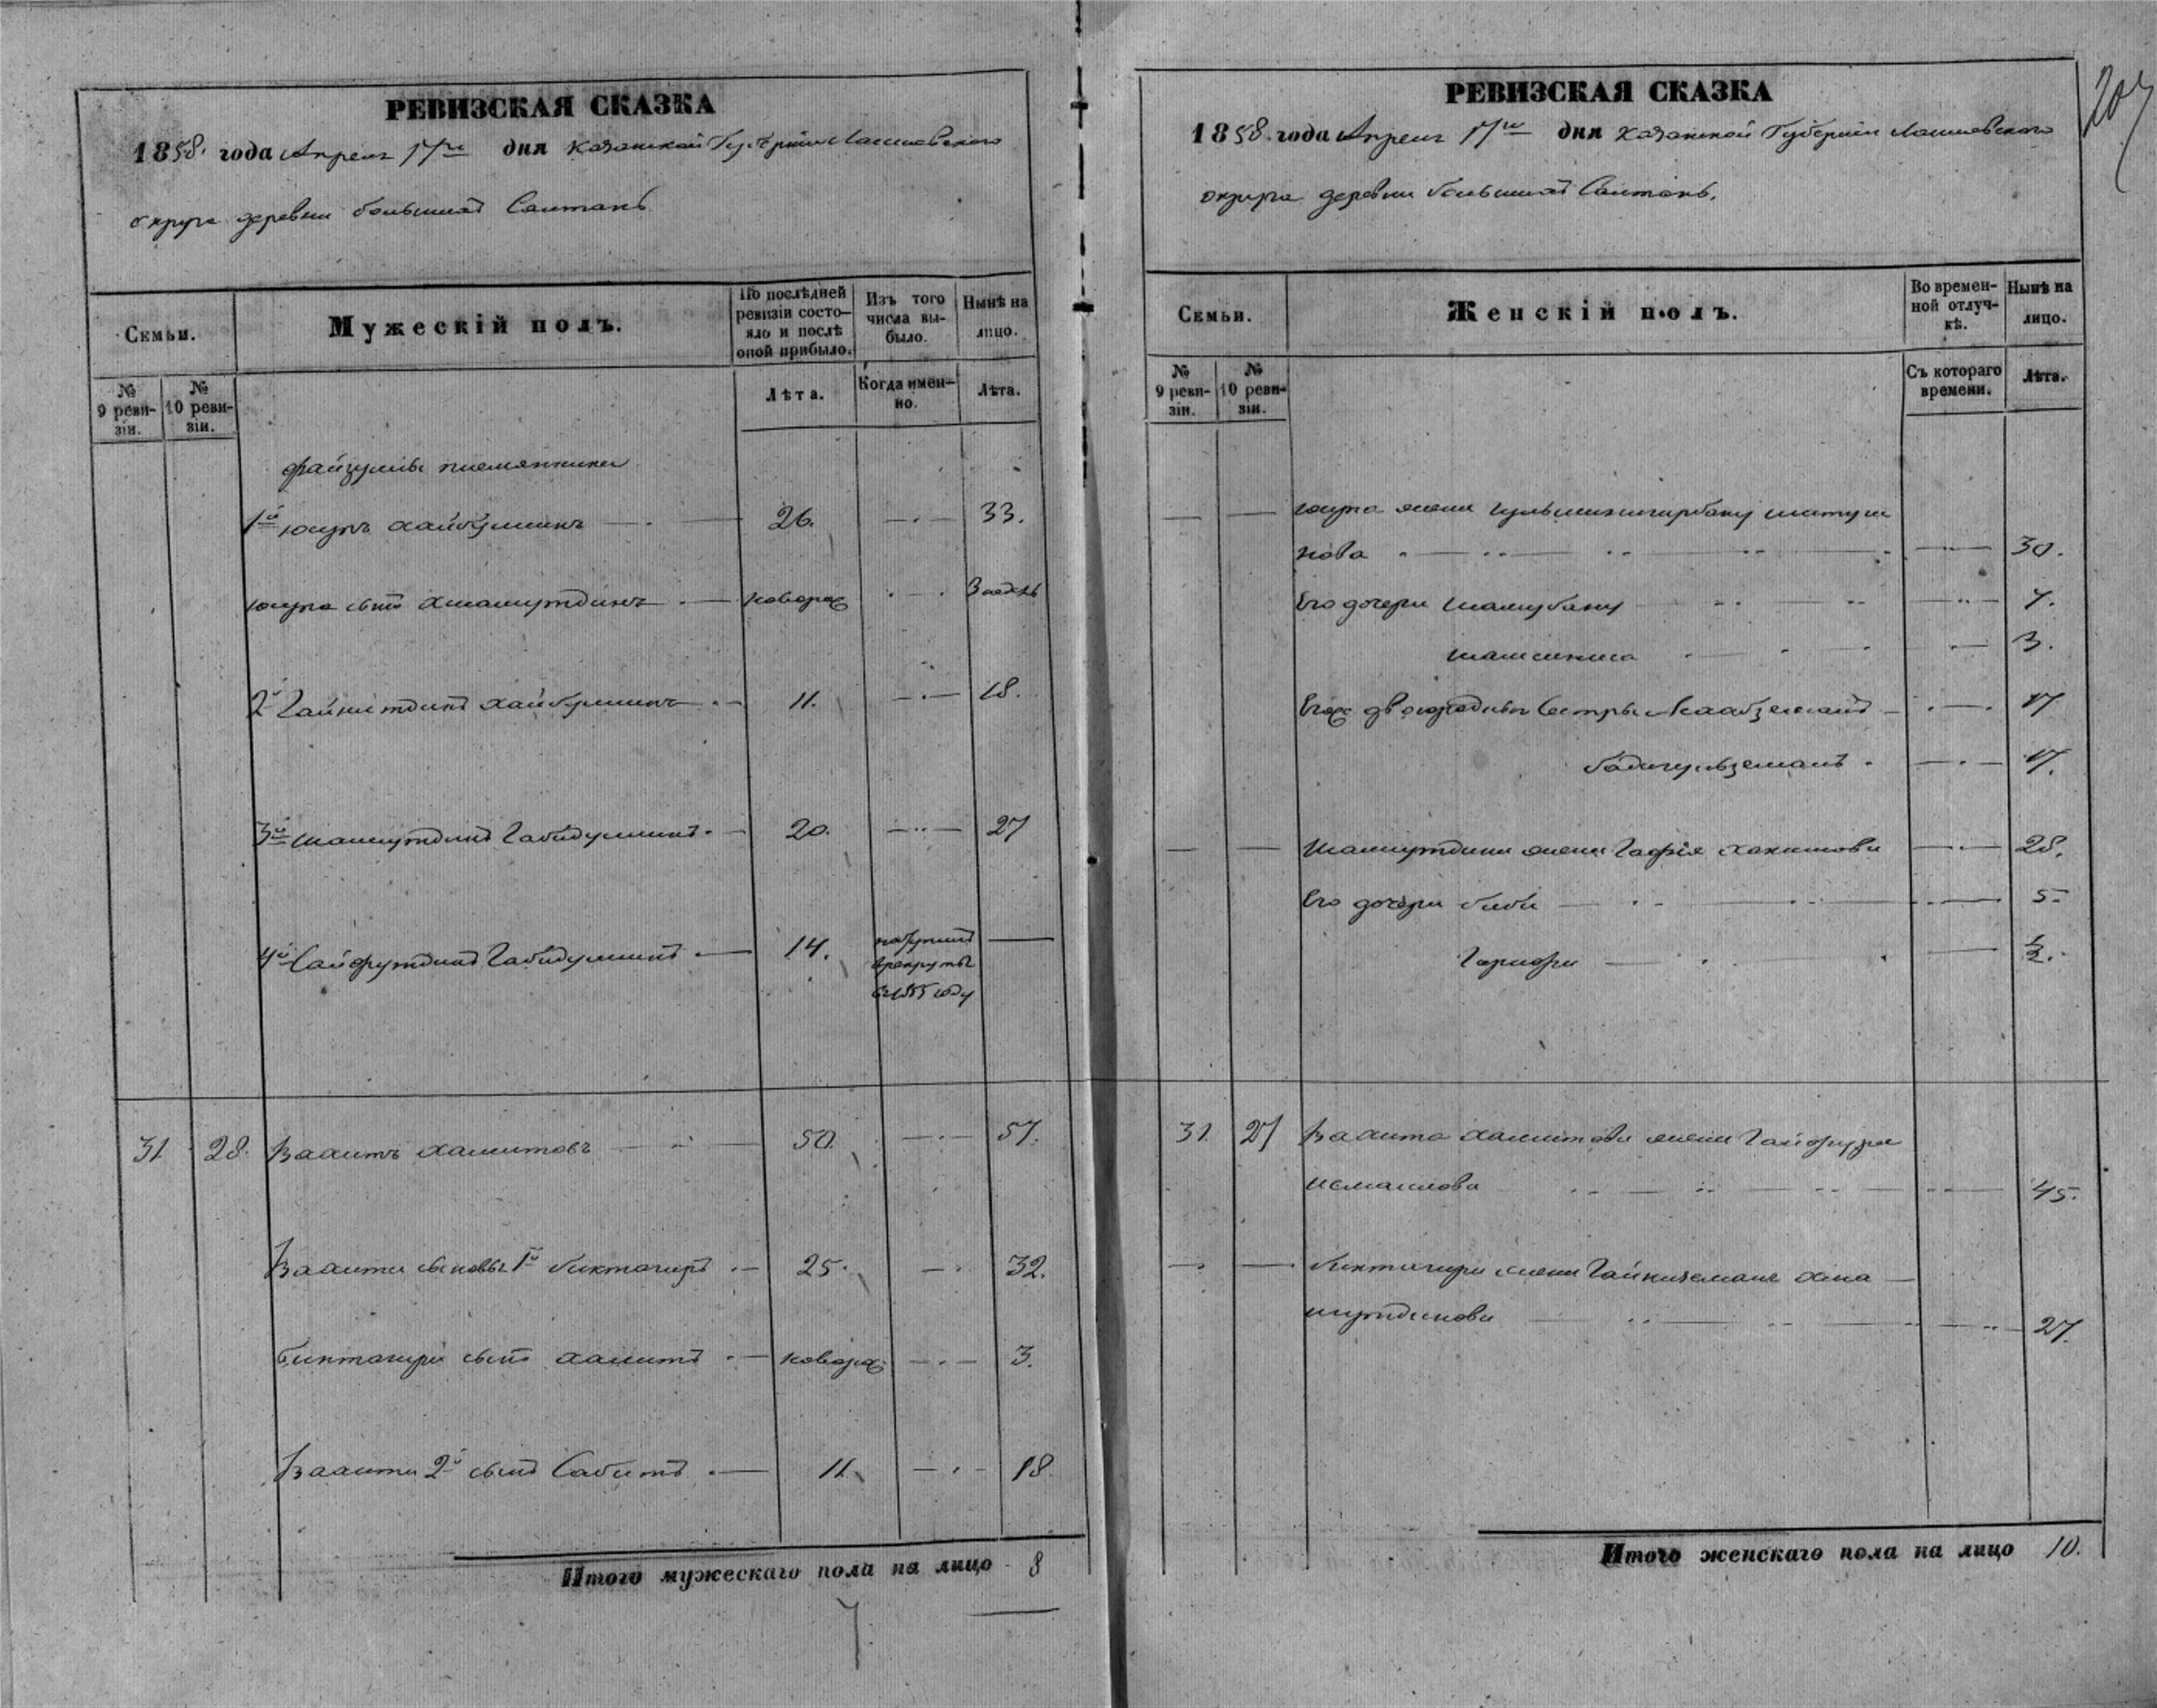 РЕВИЗСКАЯ СКАЗКА
1858. года Апреля 17го дня Казанской Губернии Лаишевского
округа деревни большихъ Саитанъ
Семьи.
Мужескій полъ.
По послѣдней ревизіи состояло и послѣ оной прибыло.
Изъ того числа выбыло.
Нынѣ на лицо.
№ 9 ревизіи.
№ 10 ревизіи.
Лѣта.
Когда именно.
Лѣта.
Файзуллы племянники
1й Юсупъ Хайбуллинъ 26. 33.
Юсупа сынъ новорож
2й Гайнитдинъ Хайбуллинъ 11. 18.
3й Шамсутдинъ Габидуллинъ 20. 27
4й Сайфутдинъ Габидуллинъ 14. поступилъ
в рекруты
в 1855 году
31 28. Вахитъ Хамитовъ 50. 57.
Вахита сыновья 1й Биктагиръ 25. 32.
Биктагира сынъ Хамитъ новорож. 3.
Вахита 2й сынъ Сабитъ 11. 18.
Итого мужескаго пола на лицо 8
РЕВИЗСКАЯ СКАЗКА
207
1858 года Апреля 17го дня Казанской Губернии Лаишевского
округа деревни большихъ Саитанъ.
Семьи.
Женскій полъ.
Во временной отлучкѣ.
Нынѣ на лицо.
№ 9 ревизіи.
№ 10 ревизіи.
Съ котораго времени.
Лѣта.
Юсупа жена
нова 30.
Его дочери Шамсубану 7.
3.
двоюродныя сестры 17
17.
Шамсутдина жена Гафія Хакимова 28.
Его дочери Биби 5
1/2.
31. 27 Вахита Хамитова жена
Исмаилова 45.
Биктагира жена
27.
Итого женскаго пола на лицо 10.